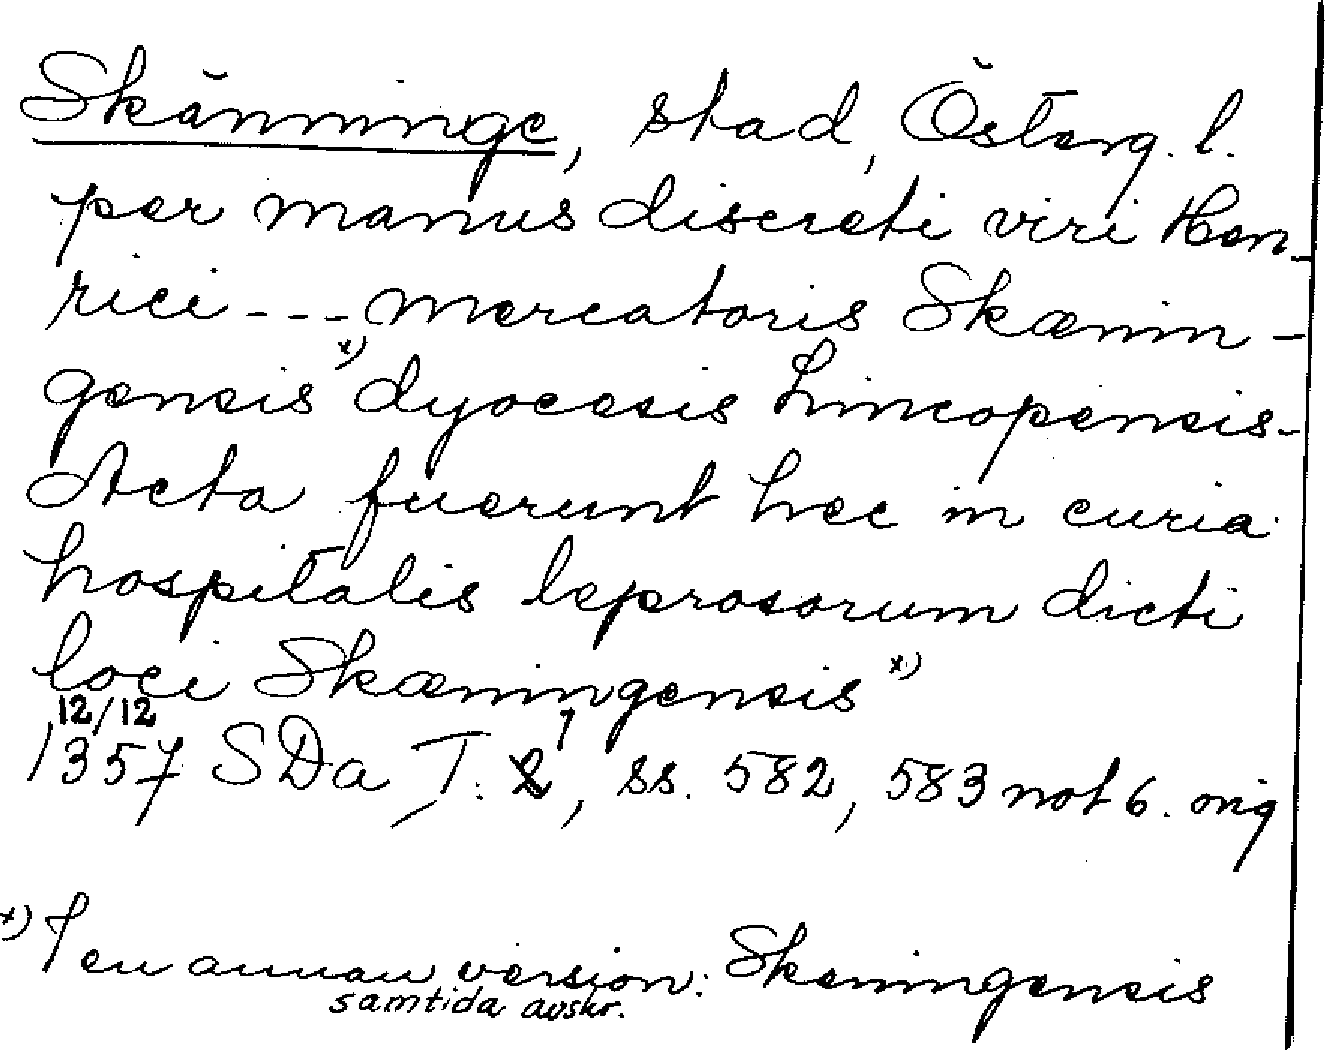 Skänninge, stad, Österg. l.
per manus discreti viri Hen-
rici --- mercatoris Skænin-
gensis x) dyocesis Lincopensis-
Acta fuerunt hec in curia
hospitalis leprosorum dicti
loci Skæningensis x)
12/12
1357 SDa T. 7, ss. 582, 583 not 6. orig
x) I en annan version: Skeningensis
samtida avskr.